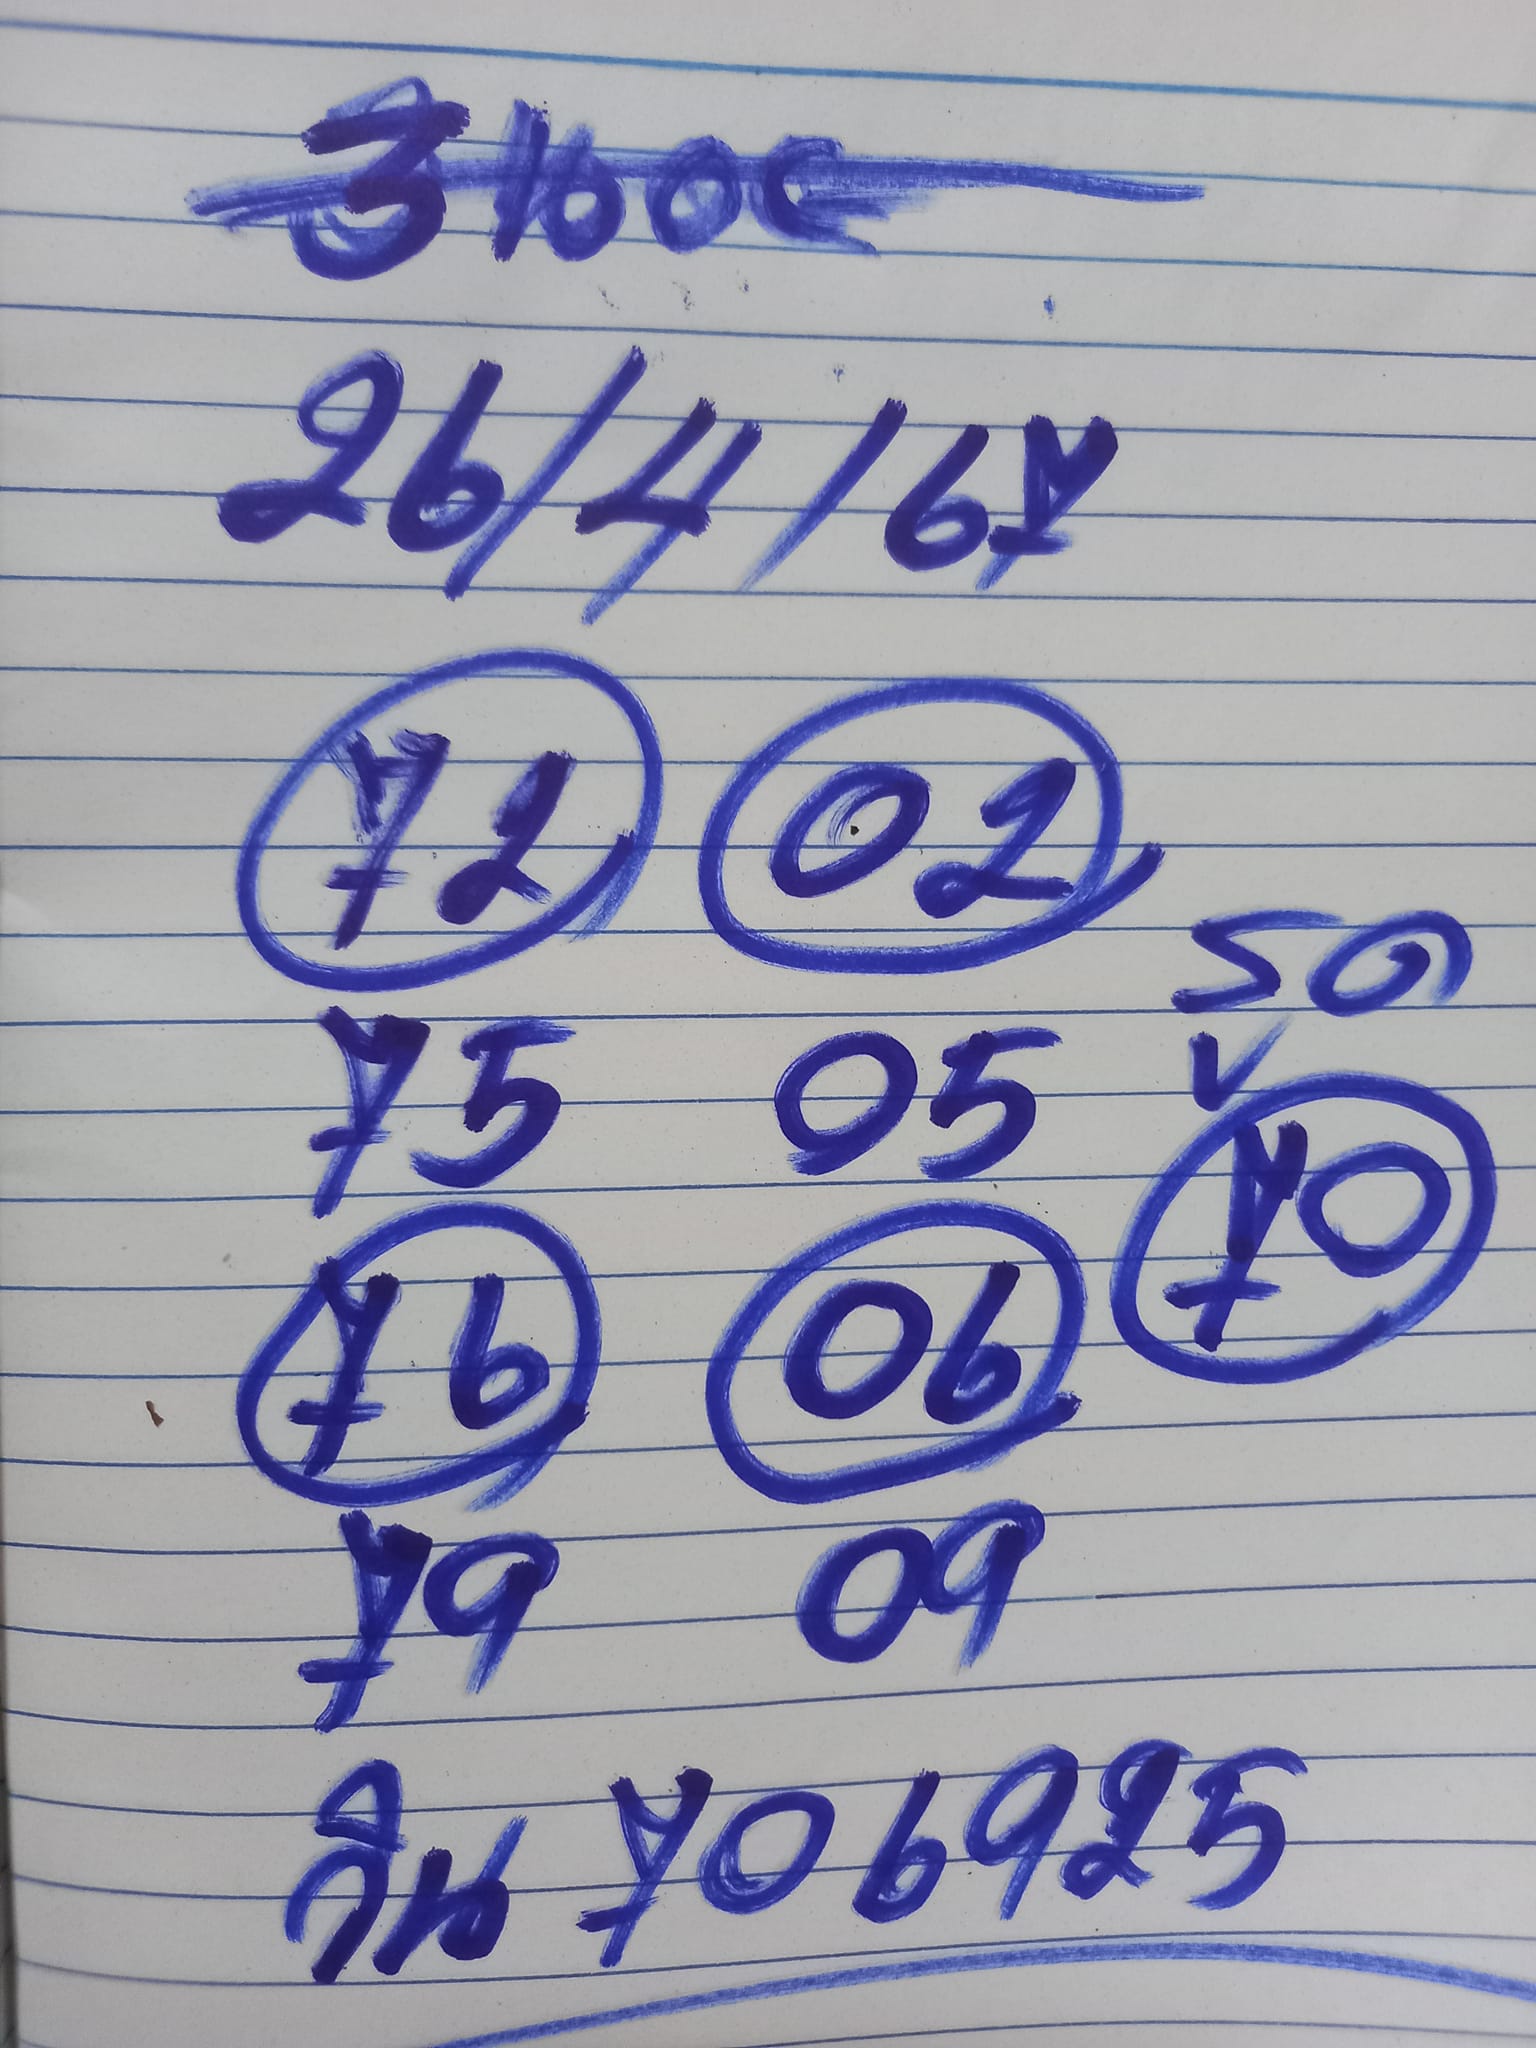 26/4/67
72 02
75 05
รูด
70
76 06
79 09
วิน 706925